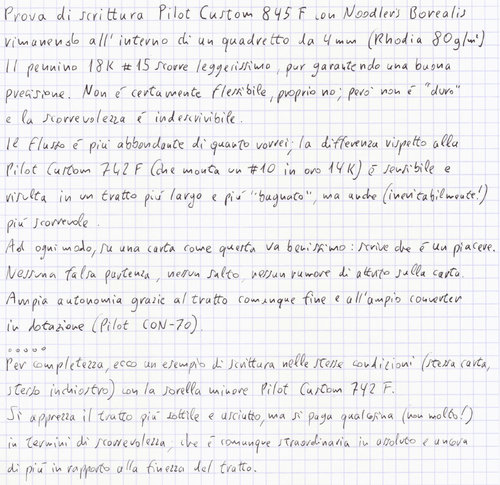 Prova di scrittura Pilot Custom 845 F con Noodler's Borealis
rimanendo all'interno di un quadretto da 4mm (Rhodia 80g/m²)
Il pennino 18K #15 scorre leggerissimo, pur garantendo una buona
precisione. Non é certamente flessibile, proprio no; peró non é "duro"
e la scorrevolezza é indescrivibile.
Il flusso é piú abbondante di quanto vorrei; la differenza rispetto alla
Pilot Custom 742 F (che monta un #10 in oro 14K) é sensibile e
risulta in un tratto piú largo e piú "bagnato", ma anche (inevitabilmente!)
piú scorrevole.
Ad ogni modo, su una carta come questa va benissimo: scrive che é un piacere.
Nessuna falsa partenza, nessun salto, nessun rumore di attrito sulla carta.
Ampia autonomia grazie al tratto comunque fine e all'ampio converter
in dotazione (Pilot CON-70).
°°°°°
Per completezza, ecco un esempio di scrittura nelle stesse condizioni (stessa carta,
stesso inchiostro) con la sorella minore Pilot Custom 742 F.
Si apprezza il tratto piú sottile e asciutto, ma si paga qualcosina (non molto!)
in termini di scorrevolezza, che é comunque straordinaria in assoluto e ancora
di piú in rapporto alla finezza del tratto.